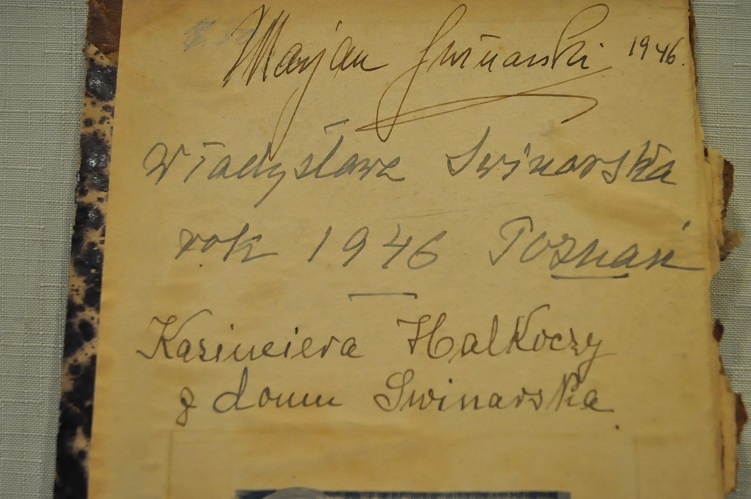 Marjan Swinarski 1946.
Władysława Swinarska
rok 1946 Poznań
Kazimiera Halkoczy
z domu Swinarska